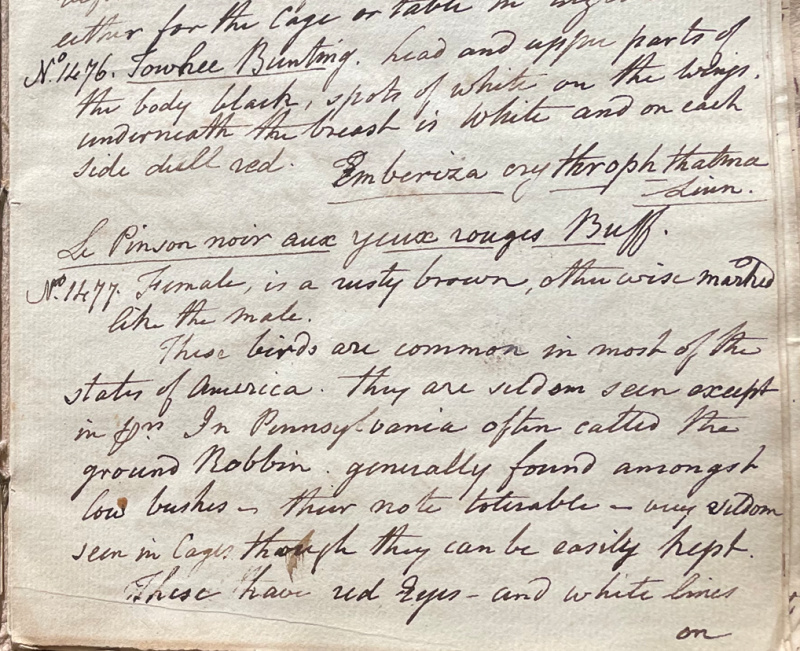 either for the Cage or table in
No. 1476. Towhee Bunting. head and upper parts of
the body black, spots of white on the wings.
underneath the breast is white and on each
side dull red. Emberiza erythrophthalma
Linn.
Le Pinson noir aux yeux rouges Buff.
No. 1477. Female, is a rusty brown, otherwise marked
like the male.
These birds are common in most of the
states of America. they are seldom seen except
in prs In Pennsylvania often called the
ground Robbin. generally found amongst
low bushes - their note tolerable - very seldom
seen in Cages though they can be easily kept.
These have red Eyes - and white lines
on